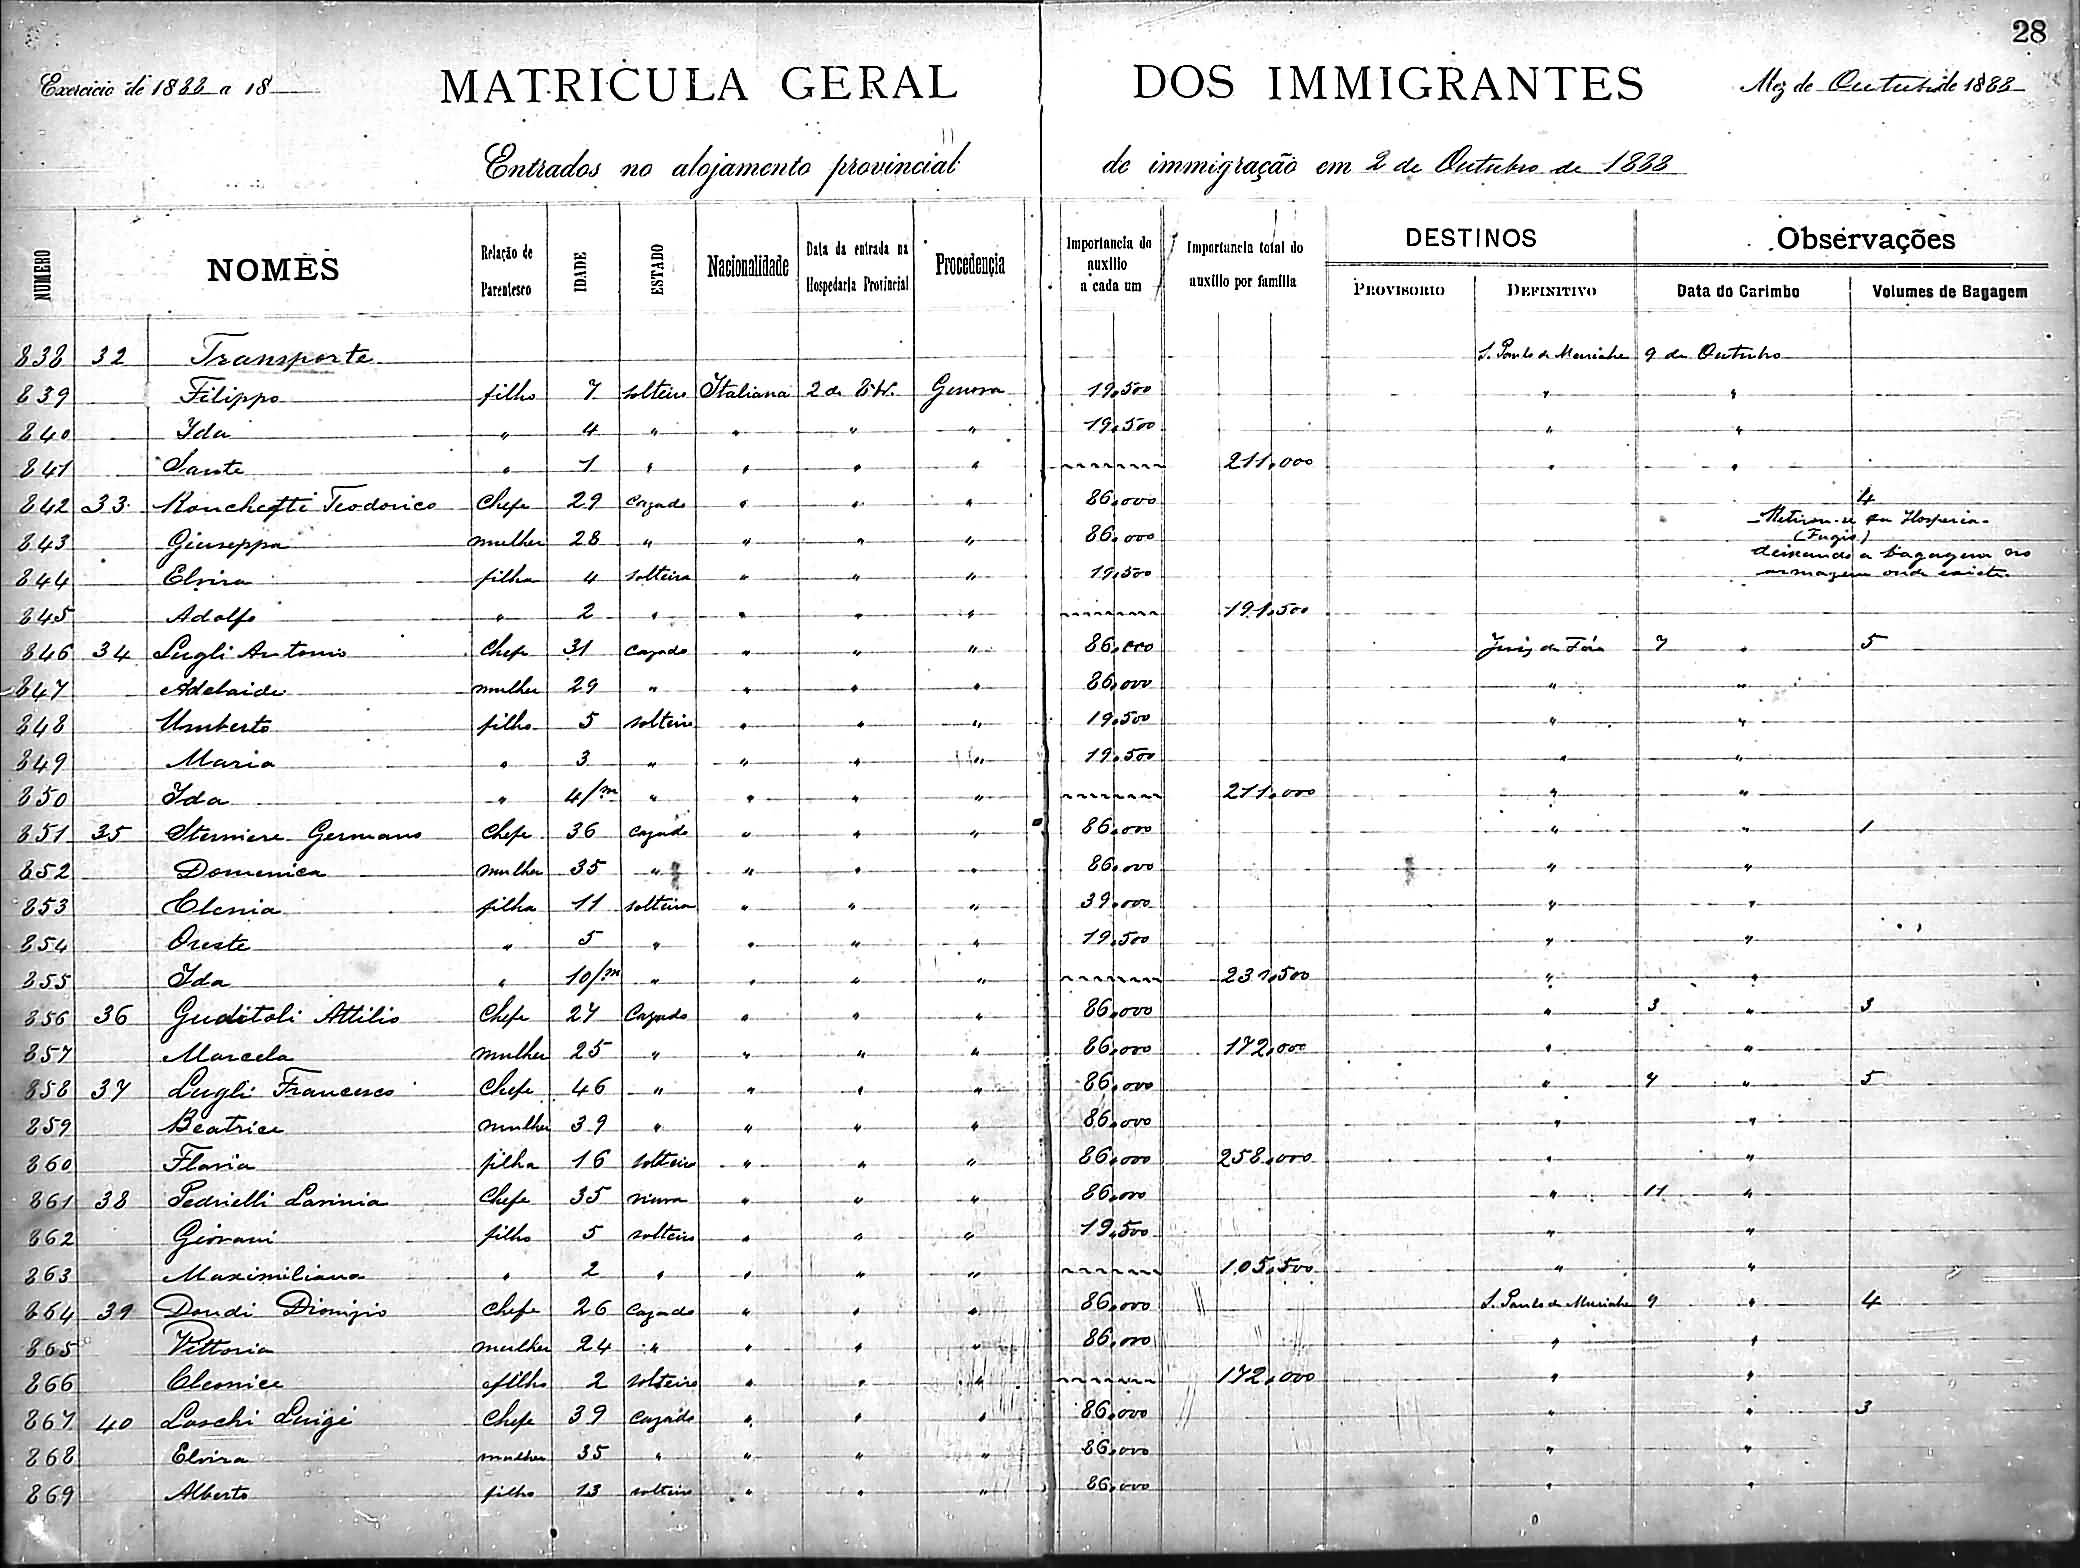 28
Exercicio de 1888 a 18
MATRICULA GERAL DOS IMMIGRANTES
Mez de Outubro de 1888
Entrados no alojamento provincial de immigração em 2 de Outubro de 1888
NUMERO NOMES Relação de Parentesco IDADE ESTADO Nacionalidade Data da entrada na Hospedaria Provincial Procedencia Importancia do auxilio a cada um Importancia total do auxilio por familia DESTINOS PROVISORIO DEFINITIVO Observações Data do Carimbo Volumes de Bagagem
838 32 Transporte S. Paulo de Muriahe 9 de Outubro
839 Filippo filho 7 solteiro Italiana 2 de Genova 19,500 " "
840 Ida " 4 " " " " 19,500 " "
841 Sante " 1 " " " " 211,000 " "
842 33 Ronchetti Teodorico Chefe 29 Cazado " " " 86,000 4
843 Giuseppa mulher 28 " " " " 86,000 Retirou-se da (Fugio)
844 Elvira filha 4 solteira " " " 19,500 deixando a bagagem no armazem onde existe.
845 Adolfo " 2 " " " " 191,500
846 34 Lugli Antonio Chefe 31 Cazado " " " 86,000 Juiz de Fóra 7 " 5
847 Adelaide mulher 29 " " " " 86,000 " "
848 Umberto filho 5 solteiro " " " 19,500 " "
849 Maria " 3 " " " " 19,500 " "
850 Ida " 4/m " " " " 211,000 " "
851 35 Germano Chefe 36 Cazado " " " 86,000 " " 1
852 Domenica mulher 35 " " " " 86,000 " "
853 filha 11 solteira " " " 39,000 " "
854 Oreste " 5 " " " " 19,500 " "
855 Ida " 10/m " " " " 231,500 " "
856 36 Guditoli Attilio Chefe 27 Cazado " " " 86,000 " 3 " 3
857 Marcela mulher 25 " " " " 86,000 172,000 " "
858 37 Lugli Francesco Chefe 46 " " " " 86,000 " 7 " 5
859 Beatrice mulher 39 " " " " 86,000 " "
860 Flavia filha 16 solteira " " " 86,000 258,000 " "
861 38 Pedrielli Lavinia Chefe 35 viuva " " " 86,000 " 11 "
862 Giovani filho 5 solteiro " " " 19,500 " "
863 Maximiliana " 2 " " " " 105,500 " "
864 39 Dondi Dionizio Chefe 26 Cazado " " " 86,000 S. Paulo de Muriahe 9 " 4
865 Vittoria mulher 24 " " " " 86,000 " "
866 Cleonice filho 2 solteiro " " " 172,000 " "
867 40 Laschi Luigi Chefe 39 Cazado " " " 86,000 " " 3
868 Elvira mulher 35 " " " " 86,000 " "
869 Alberto filho 13 solteiro " " " 86,000 " "